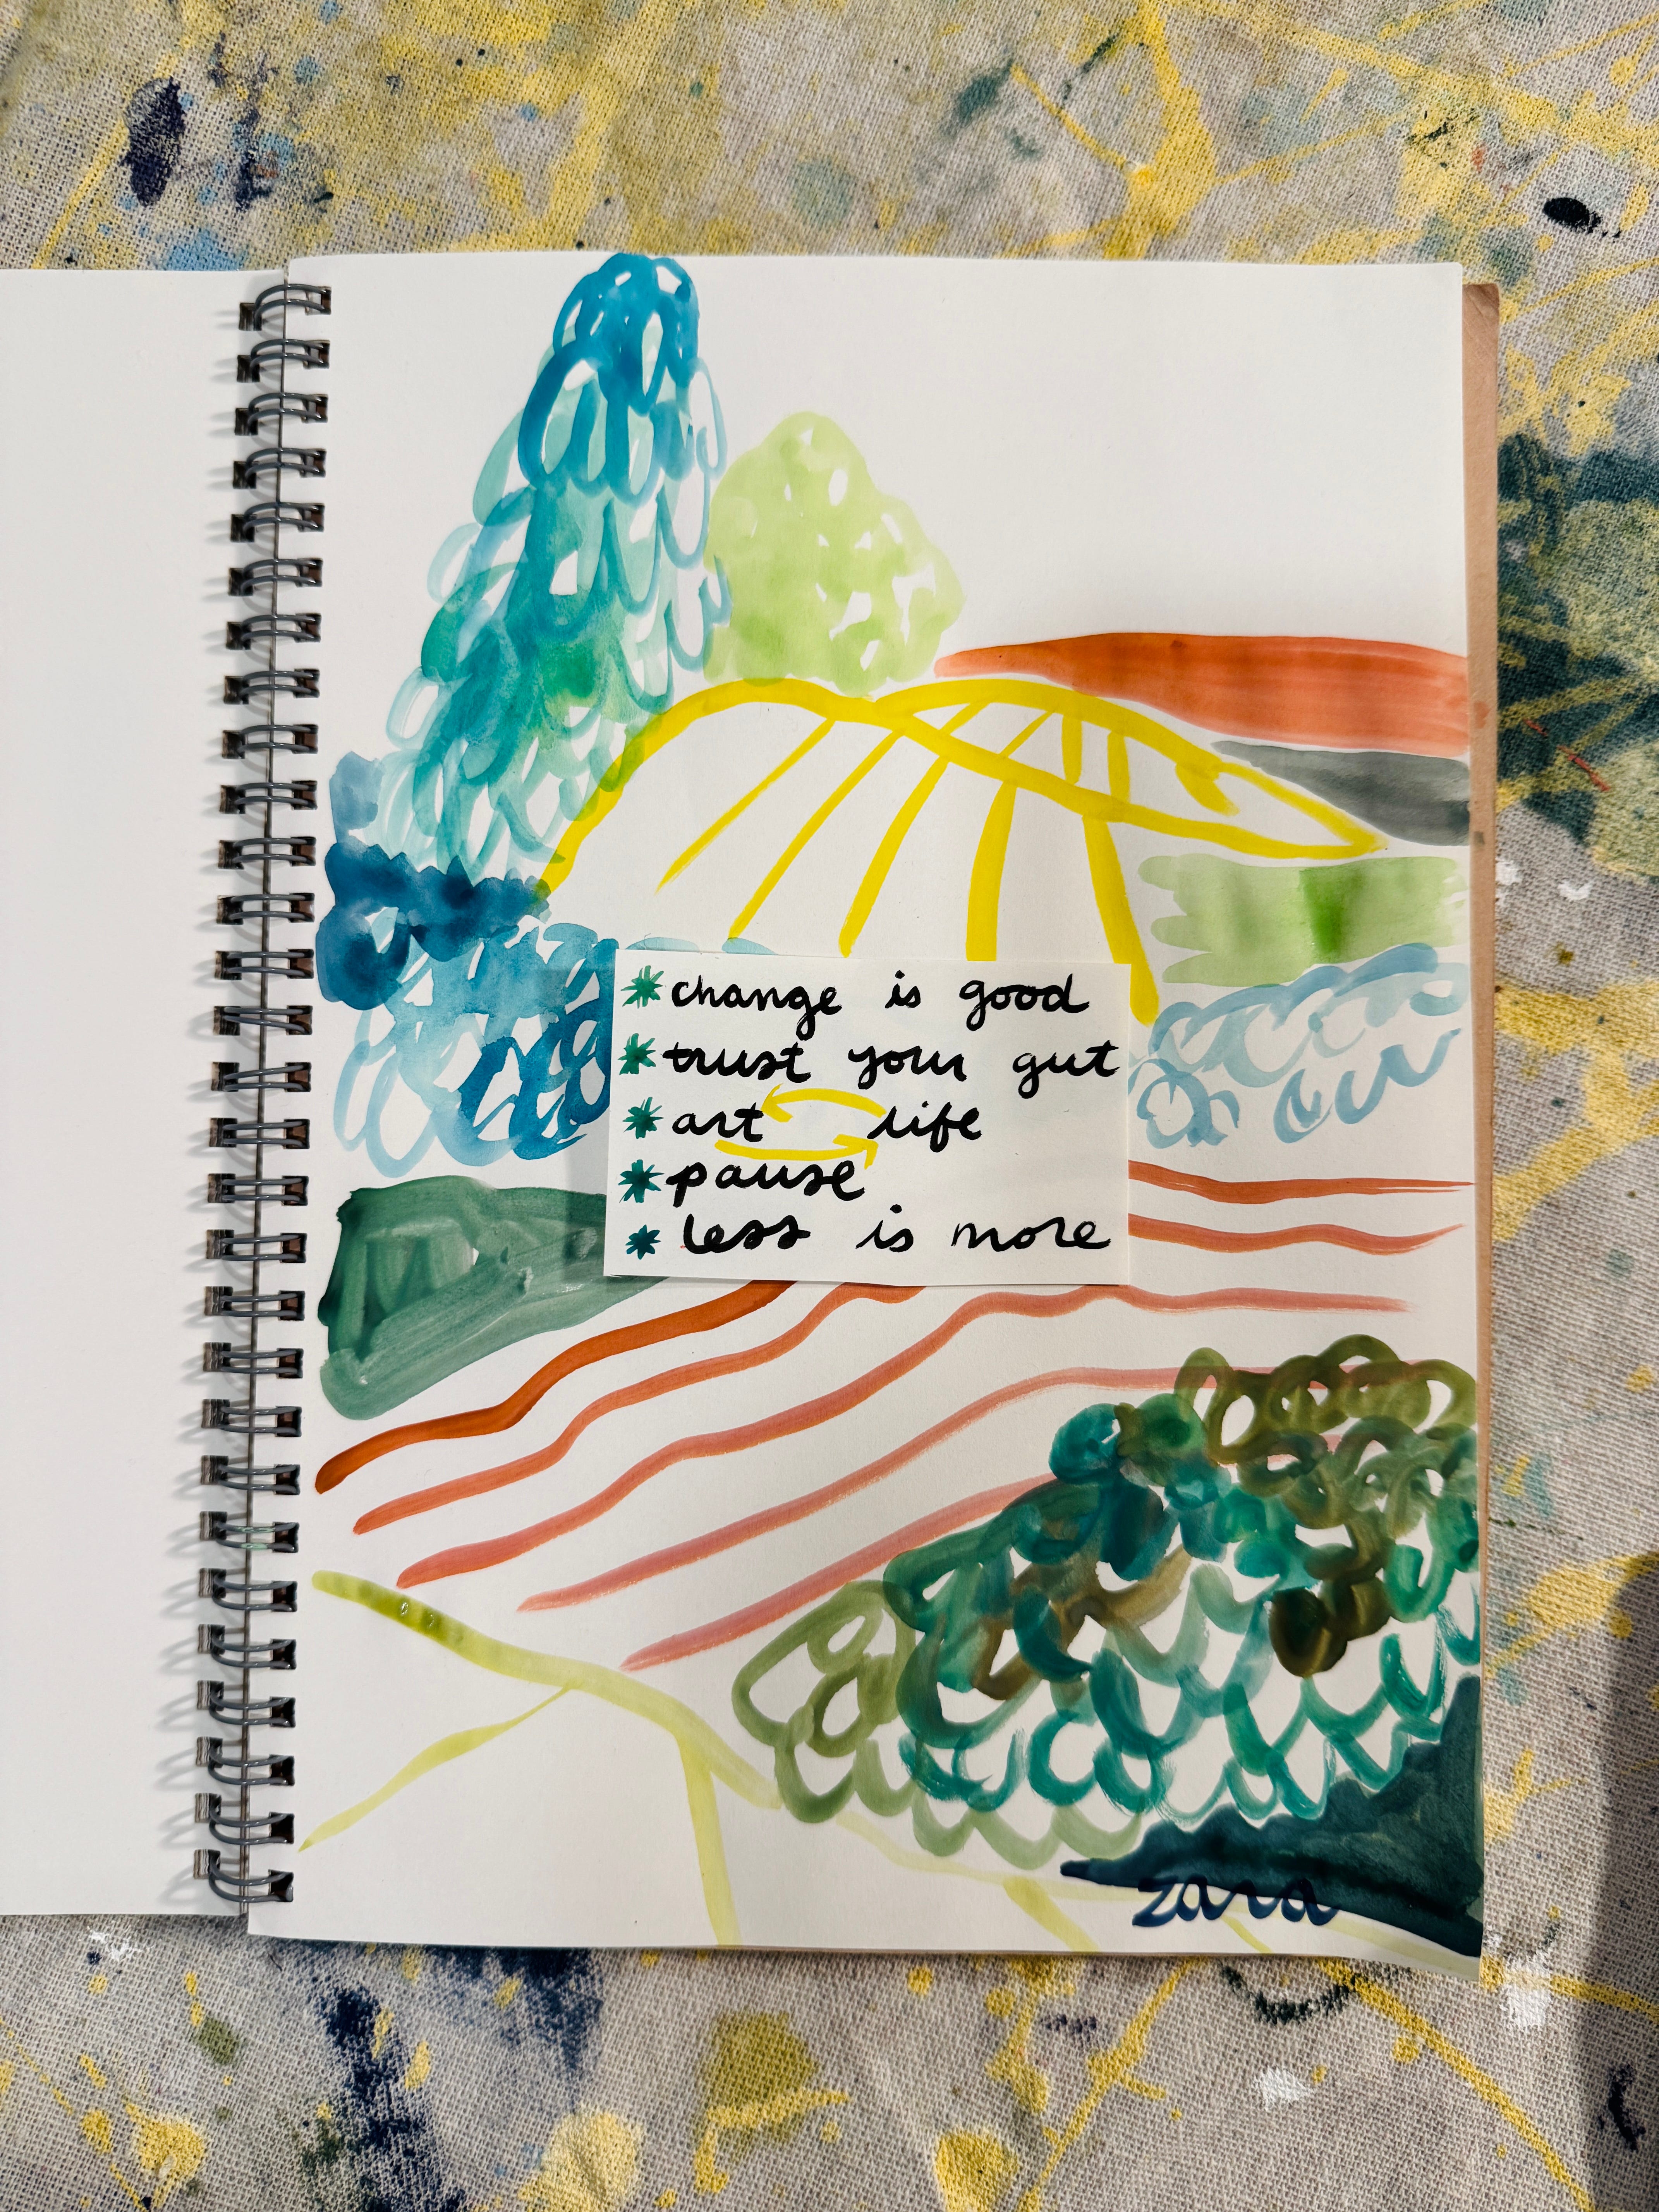 change is good
trust your gut
art life
pause
less is more
zara